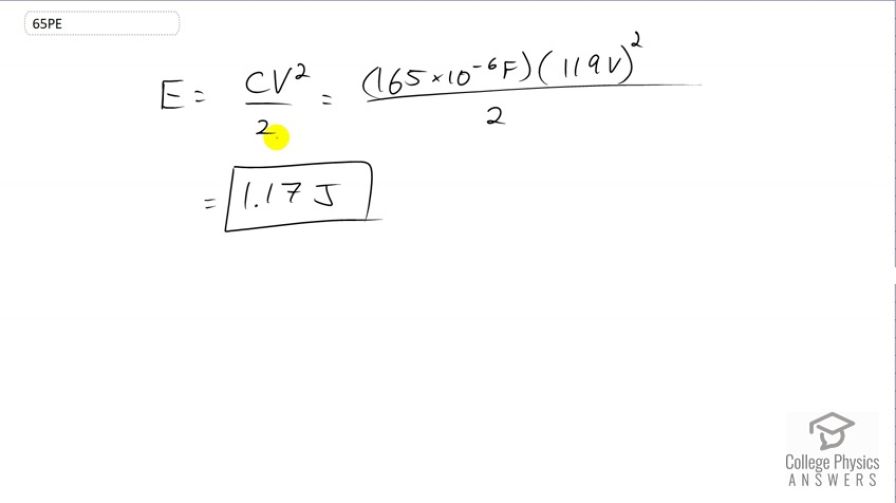 65PE
E = CV²/2 = (165×10⁻⁶F)(119V)²/2
= 1.17 J
College Physics
ANSWERS